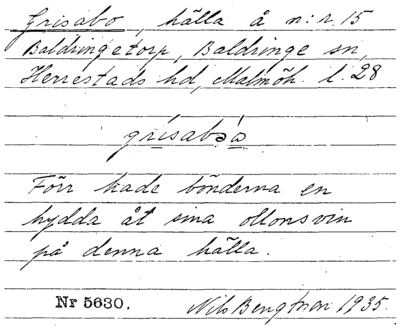 Grisabo, hälla å n:r 15
Baldringetorp, Baldringe sn,
Herrestads hd, Malmöh. l. 28
grisabǝa
Förr hade bönderna en
hydda åt sina ollonsvin
på denna hälla.
Nr 5630. Nils Bengtson 1935.